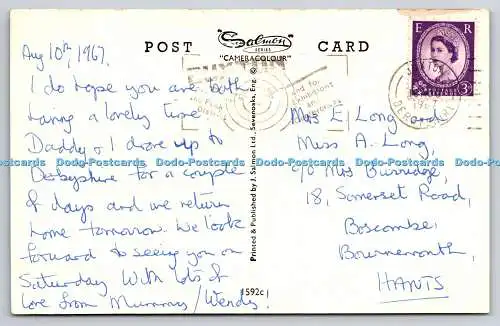 POST
Salmon
SERIES
"CAMERACOLOUR"
CARD
Aug 10th, 1967.
I do hope you are both
having a lovely time
Daddy & I drove up to
Derbyshire for a couple
of days and we return
home tomorrow. We look
forward to seeing you on
Saturday With lots of
love from Mummy/Wendy.
Printed & Published by J. Salmon Ltd., Sevenoaks, Eng. ©
1592c
E R
3D
Mrs E Long and
Miss A. Long,
c/o Mrs Burridge,
18, Somerset Road,
Boscombe,
Bournemouth,
HANTS
Dodo-Postcards Dodo-Postcards Dodo-Postcards Dodo-Postcards Dodo-Postcards